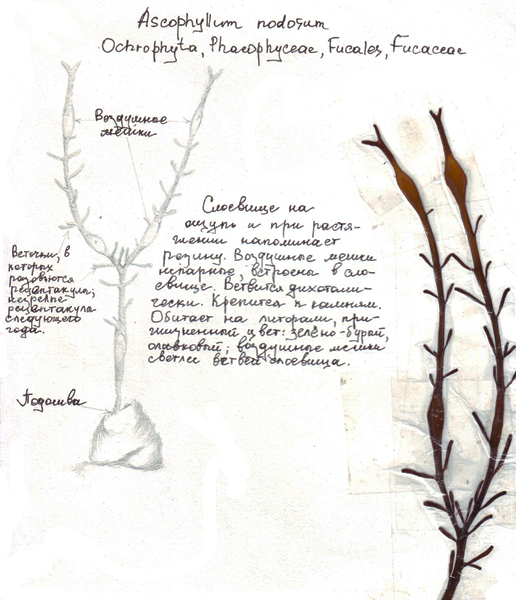 Ascophyllum nodosum
Ochrophyta, Phaeophyceae, Fucales, Fucaceae
Воздушные
мешки
Слоевище на
ощупь и при растя-
жении напоминает
резину. Воздушные мешки
непарные, встроены в сло-
евище. Ветвится дихотоми-
чески. Крепится к камням.
Обитает на литорали, при-
жизненный цвет: зелёно-бурый,
оливковый; воздушные мешки
светлее ветвей слоевища.
Веточки, в
которых
разовьются
рецептакулы,
незрелые
рецептакулы
следующего
года.
Подошва